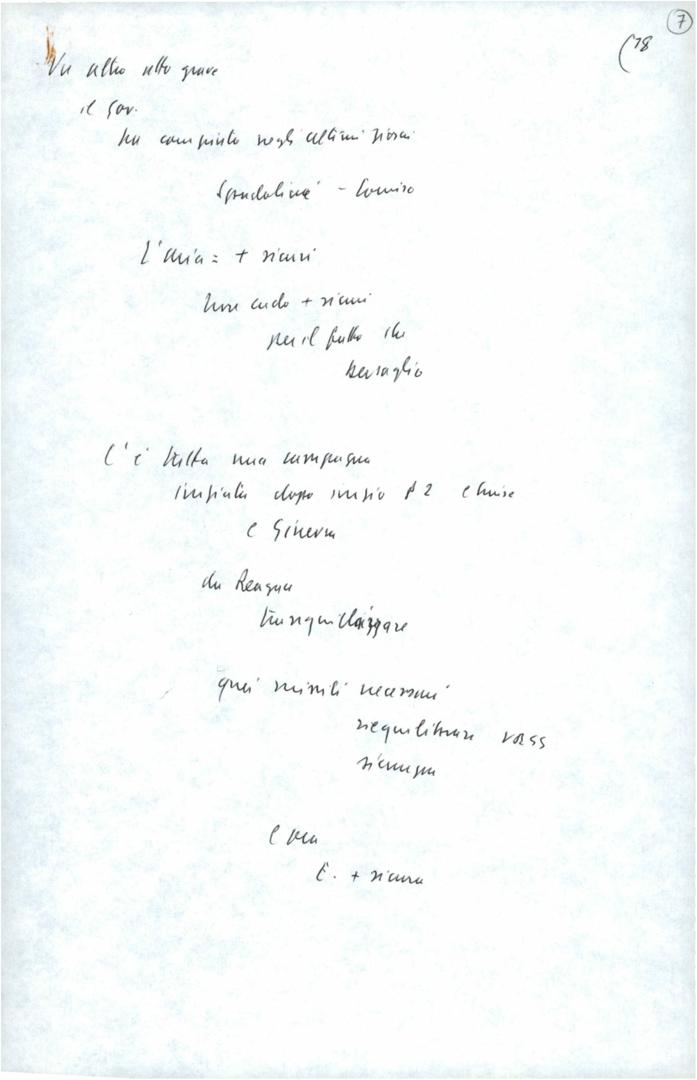 7
(18
Un altro atto grave
il Gov.
ha compiuto negli ultimi giorni
Spadolini - Comiso
+ sicuri
Non credo + sicuri
per il fatto che
bersaglio
C'è tutta una campagna
iniziata dopo inizio P2 Cruise
e Ginevra
da Reagan
tranquillizzare
quei missili necessari
riequilibrare URSS
sicurezza
E ora
E. + sicura